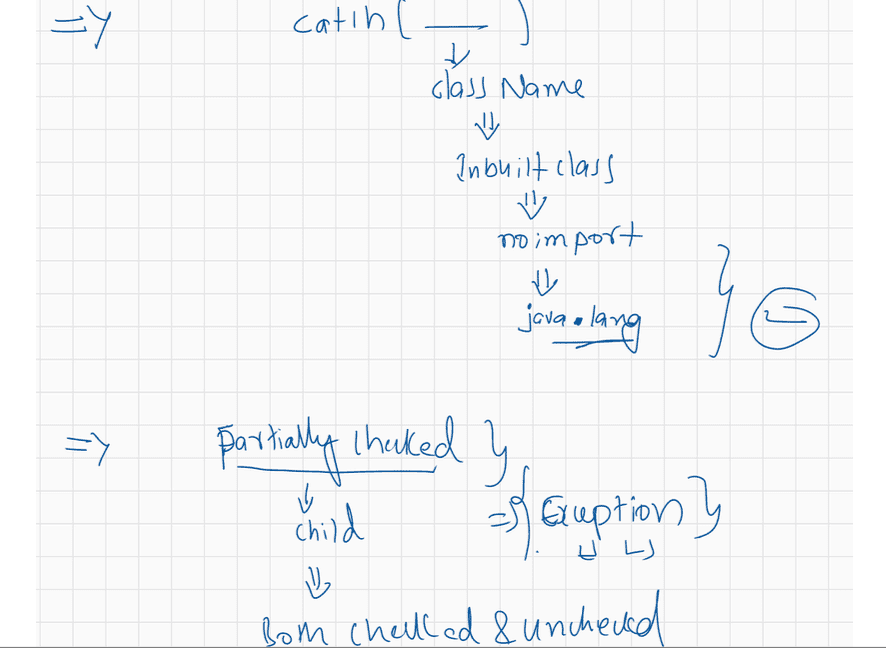 => catch( ___ )
↓
class Name
⇓
Inbuilt class
⇓
no import
⇓
java.lang
=> Partially checked }
↓
child => { Exception }
⇓
Both checked & unchecked